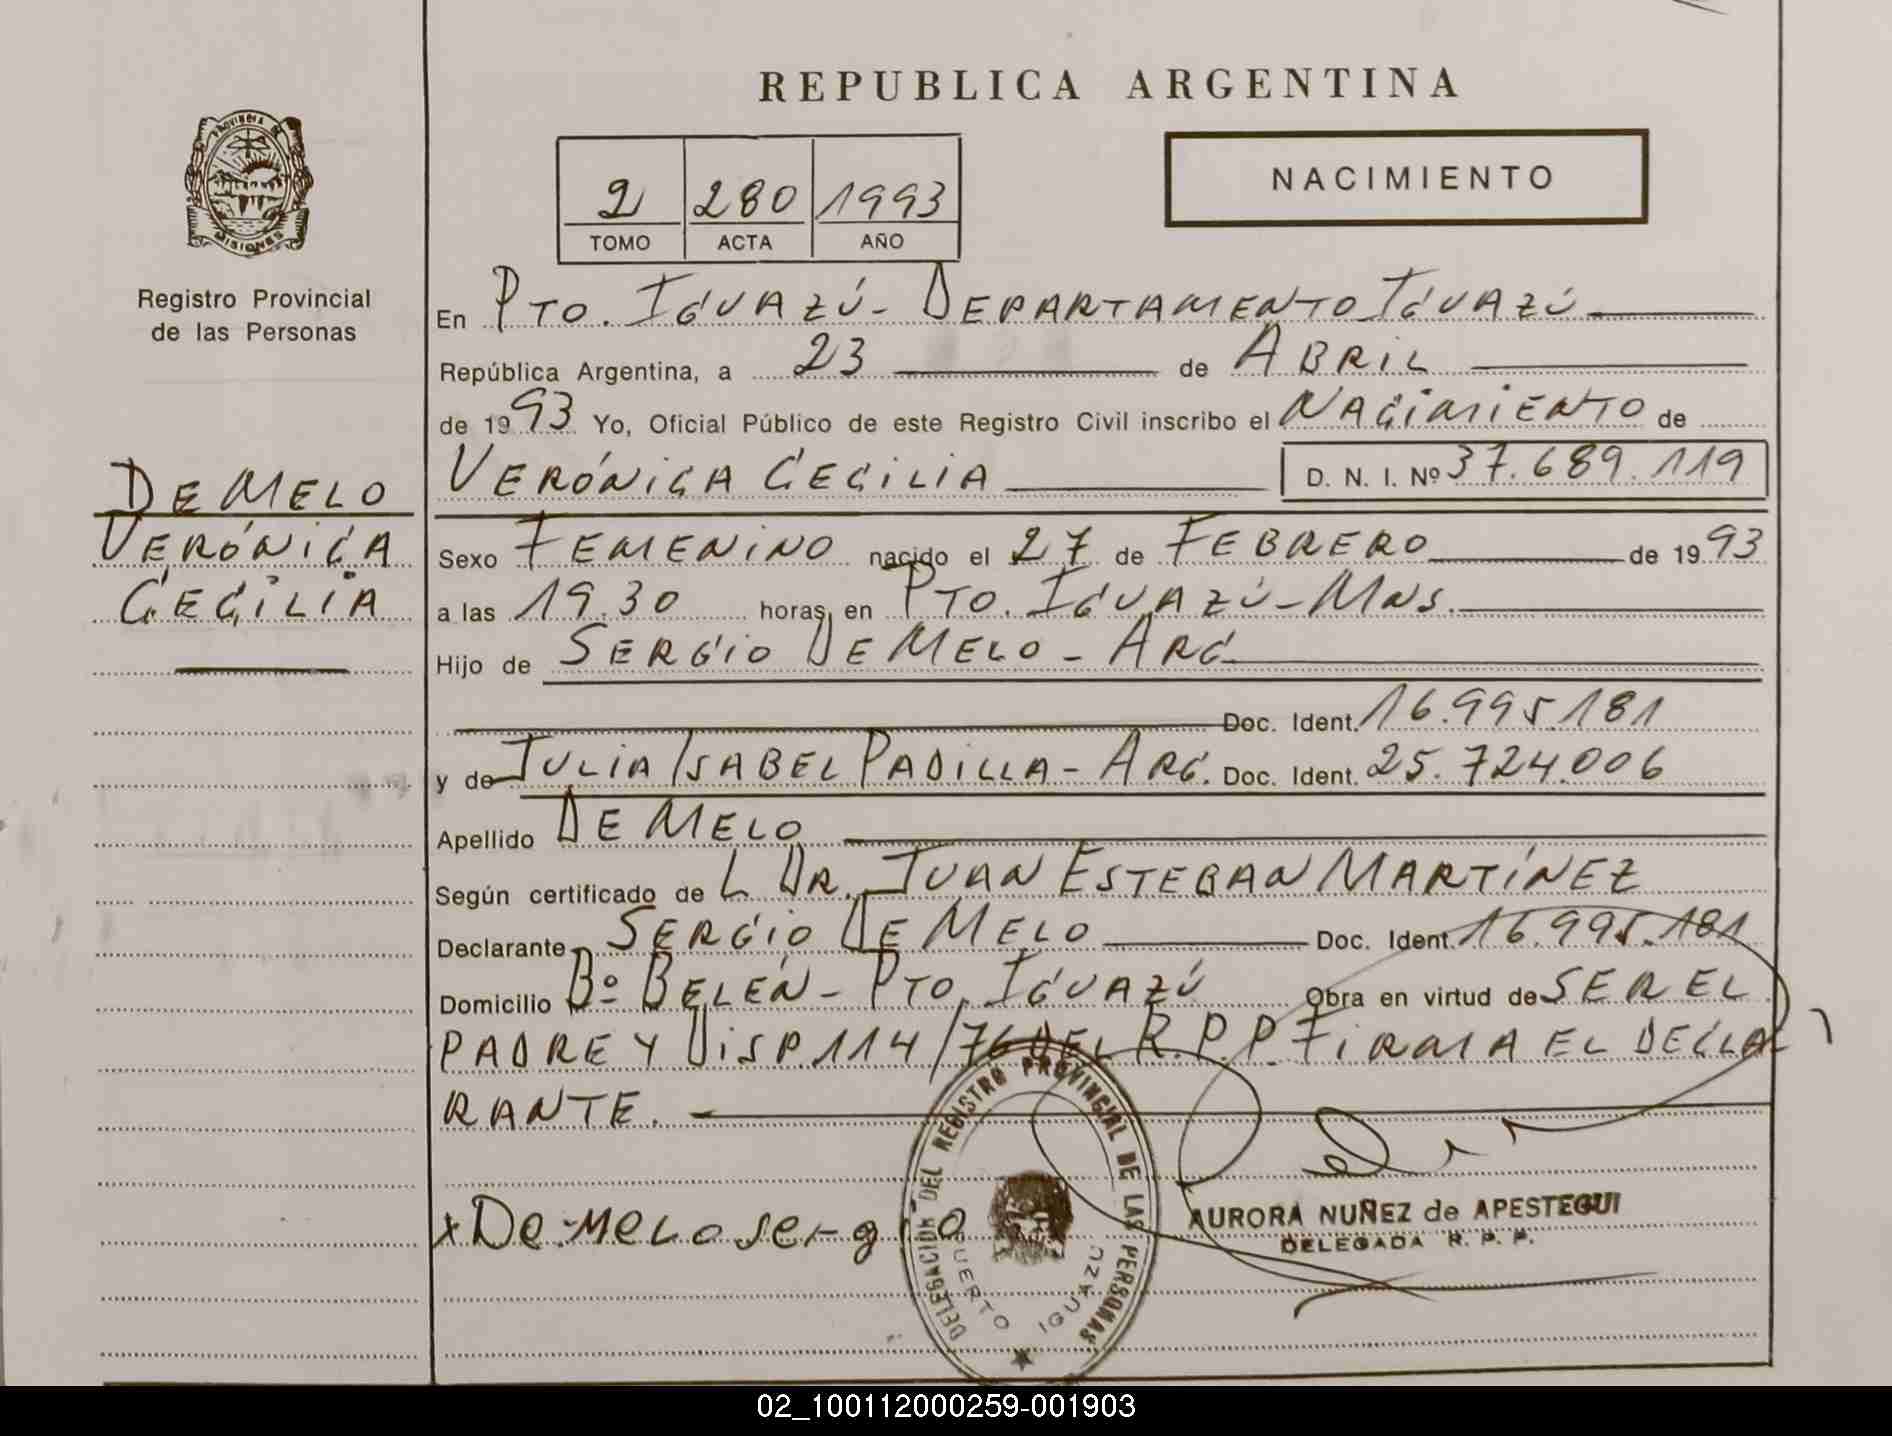 REPUBLICA ARGENTINA
PROVINCIA DE
MISIONES
Registro Provincial
de las Personas
2 280 1993
TOMO ACTA AÑO
NACIMIENTO
En PTO. IGUAZÚ - DEPARTAMENTO IGUAZÚ
República Argentina, a 23 de ABRIL
de 1993 Yo, Oficial Público de este Registro Civil inscribo el NACIMIENTO de
VERÓNICA CECILIA D. N. I. Nº 37.689.119
DE MELO
VERÓNICA
CECILIA
Sexo FEMENINO nacido el 27 de FEBRERO de 1993
a las 19.30 horas, en PTO. IGUAZÚ - MNS.
Hijo de SERGIO DE MELO - ARG.
Doc. Ident. 16.995.181
y de JULIA ISABEL PADILLA - ARG. Doc. Ident. 25.724.006
Apellido DE MELO
Según certificado de L. DR. JUAN ESTEBAN MARTÍNEZ
Declarante SERGIO DE MELO Doc. Ident. 16.995.181
Domicilio Bº BELÉN - PTO. IGUAZÚ Obra en virtud de SER EL
PADRE Y DISP. 114/76 DEL R.P.P. FIRMA EL DECLA
RANTE.
x De Melo sergio
DELEGACION DEL REGISTRO PROVINCIAL DE LAS PERSONAS
PUERTO IGUAZU
AURORA NUÑEZ de APESTEGUI
DELEGADA R. P. P.
02_100112000259-001903